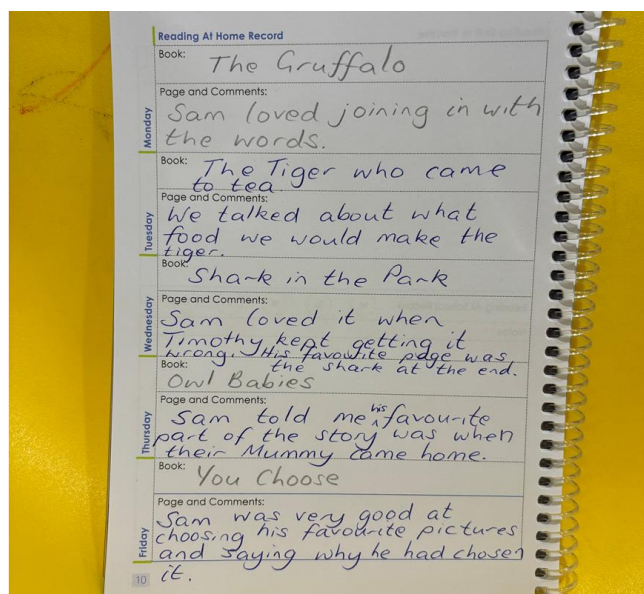 Reading At Home Record
Book: The Gruffalo
Monday
Page and Comments:
Sam loved joining in with
the words.
Book: The Tiger who came
to tea.
Tuesday
Page and Comments:
We talked about what
food we would make the
tiger.
Book: Shark in the Park
Wednesday
Page and Comments:
Sam loved it when
Timothy kept getting it
wrong. His favourite page was
the shark at the end.
Book:
Owl Babies
Thursday
Page and Comments:
Sam told me his favourite
part of the story was when
their Mummy came home.
Book: You Choose
Friday
Page and Comments:
Sam was very good at
choosing his favourite pictures
and saying why he had chosen
it.
10